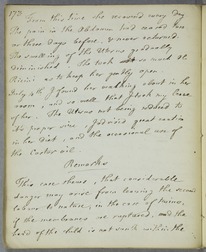 172
From this time she recovered every day
The pain in the Abdomen had ceased two
or three days before, & never returned.
The swelling of the Uterus gradually
diminished. She took so much ol.
Ricini as to keep her gently open.
July 9th I found her walking about in her
room, and so well, that I took my leave
of her. The Uterus not being reduced to
its proper size, I advised great care in
her diet, and the occasional use of
the Castor oil.
Remarks
This case shows, that considerable
danger may arise from leaving the second
labour to nature, in the case of twins,
if the membranes are ruptured, and the
head of the child is not sunk within the